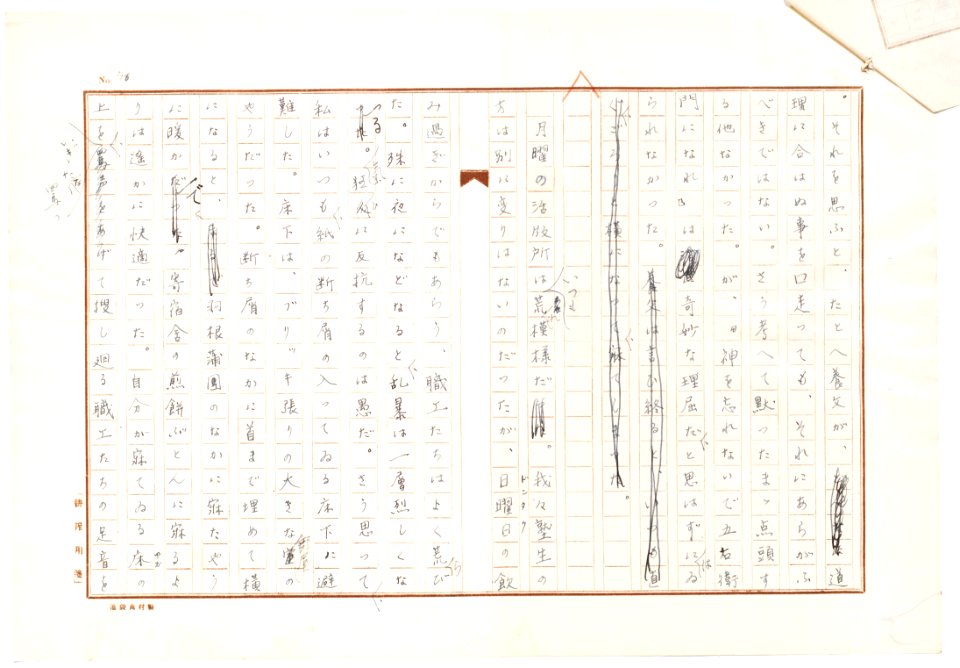 。それを思ふと、たとへ養父が、道
理に合はぬ事を口走つても、それにあらがふ
べきではない。さう考へて默つたまゝ点頭す
る他なかつた。が、神を忘れないで五右衛
門になれとは奇妙な理屈だと思はずにはゐ
られなかつた。養父は言ひ終ると、いつも直
ぐごろりと横になつて寐てしまつた。
月曜の活版所はいつも荒模様だ。我々塾生の
方は別に変りはないのだつたが、日曜日の飲
ドンタク
み過ぎからでもあらう、職工たちはよく荒び
た。殊に夜になどなると乱暴は一層烈しくな
る。狂人に反抗するのは愚だ。さう思つて
私はいつも紙の断ち屑の入つてゐる床下に避
難した。床下は、ブリッキ張りの大きな
やうだつた。断ち屑のなかに首まで埋めて横
になると、羽根蒲團のなかに寐たやう
に暖かで、寄宿舎の煎餅ぶとんに寐るよ
りは遙かに快適だつた。自分が寐てゐる床の
上を罵声をあげて捜し廻る職工たちの足音を
No.